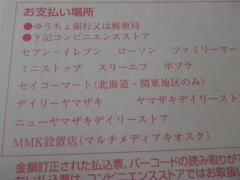 お支払い場所
●ゆうちょ銀行又は郵便局
●下記コンビニエンスストア
セブン-イレブン ローソン ファミリーマー
ミニストップ スリーエフ ポプラ
セイコーマート(北海道・関東地区のみ)
デイリーヤマザキ ヤマザキデイリースト
ニューヤマザキデイリーストア
MMK設置店(マルチメディアキオスク)
金額訂正された払込票、バーコードの読み取りがで
払込票は、コンビニエンスストアではお取扱い